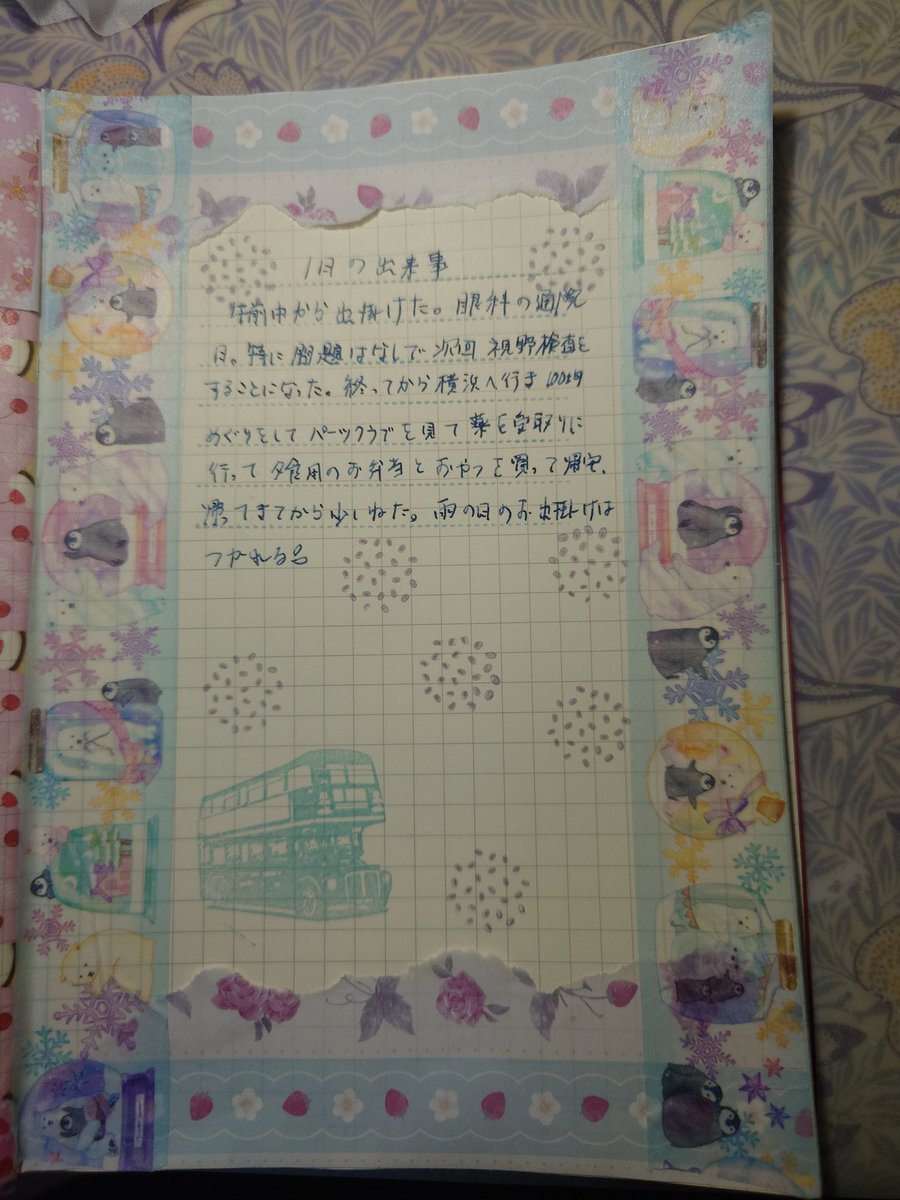 1日の出来事
午前中から出掛けた。眼科の通院
日。特に問題はなしで次回視野検査を
することになった。終ってから横浜へ行き100均
めぐりをしてパーツクラブを見て薬を受取りに
行って夕食用のお弁当とおやつを買って帰宅、
帰ってきてから少しねた。雨の日のお出掛けは
つかれる